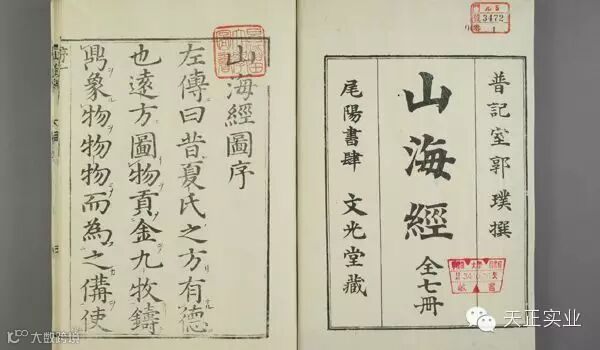 晋記室郭璞撰
山海經 全七冊
尾陽書肆 文光堂藏
3472
1
山海經圖序
左傳曰昔夏氏之方有德
也遠方圖物貢金九牧鑄
象物物物而為之備使
序一
大数跨境
天正实业